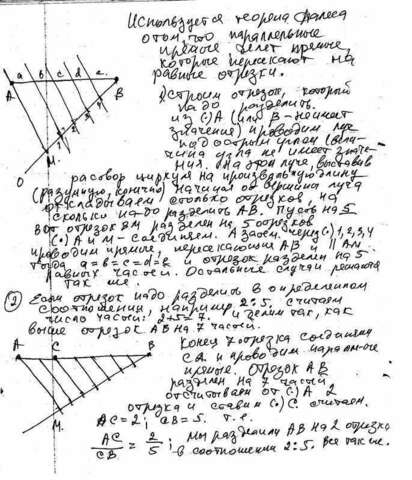 Используется теорема Фалеса
о том, что параллельные
прямые делят прямые,
которые пересекают на
равные отрезки.
a b c d e
A B
M 1 2 3 4
O
Строим отрезок, который
надо разделить.
из (·)A (или B - не имеет
значения) проводим луч
под острым углом (вели-
чина угла не имеет значе-
ния. На этом луче, выставив
раствор циркуля на произвольную длину
(разумную, конечно) начиная от вершины луча
откладываем столько отрезков, на
сколько надо разделить AB. Пусть на 5
вот отрезок BM разделен на 5 отрезков
(·) A и M - соединяем. А затем через (·) 1, 2, 3, 4
проводим прямые, пересекающие AB и || AM.
тогда a=b=c=d=e и отрезок разделен на 5
равных частей. Остальные случаи решаются
так же.
② Если отрезок надо разделить в определенном
соотношении, например, 2:5, считаем
число частей: 2+5=7 и делим так, как
выше отрезок AB на 7 частей.
A C B
M
Конец 7 отрезка соединяем
с A и проводим паралл-ые
прямые. Отрезок AB
разделен на 7 частей
отсчитываем от (·) A 2
отрезка и ставим (·) C. считаем.
AC=2; CB=5. т.е.
AC/CB = 2/5; Мы разделили AB на 2 отрезка
в соотношении 2:5. Все так же.